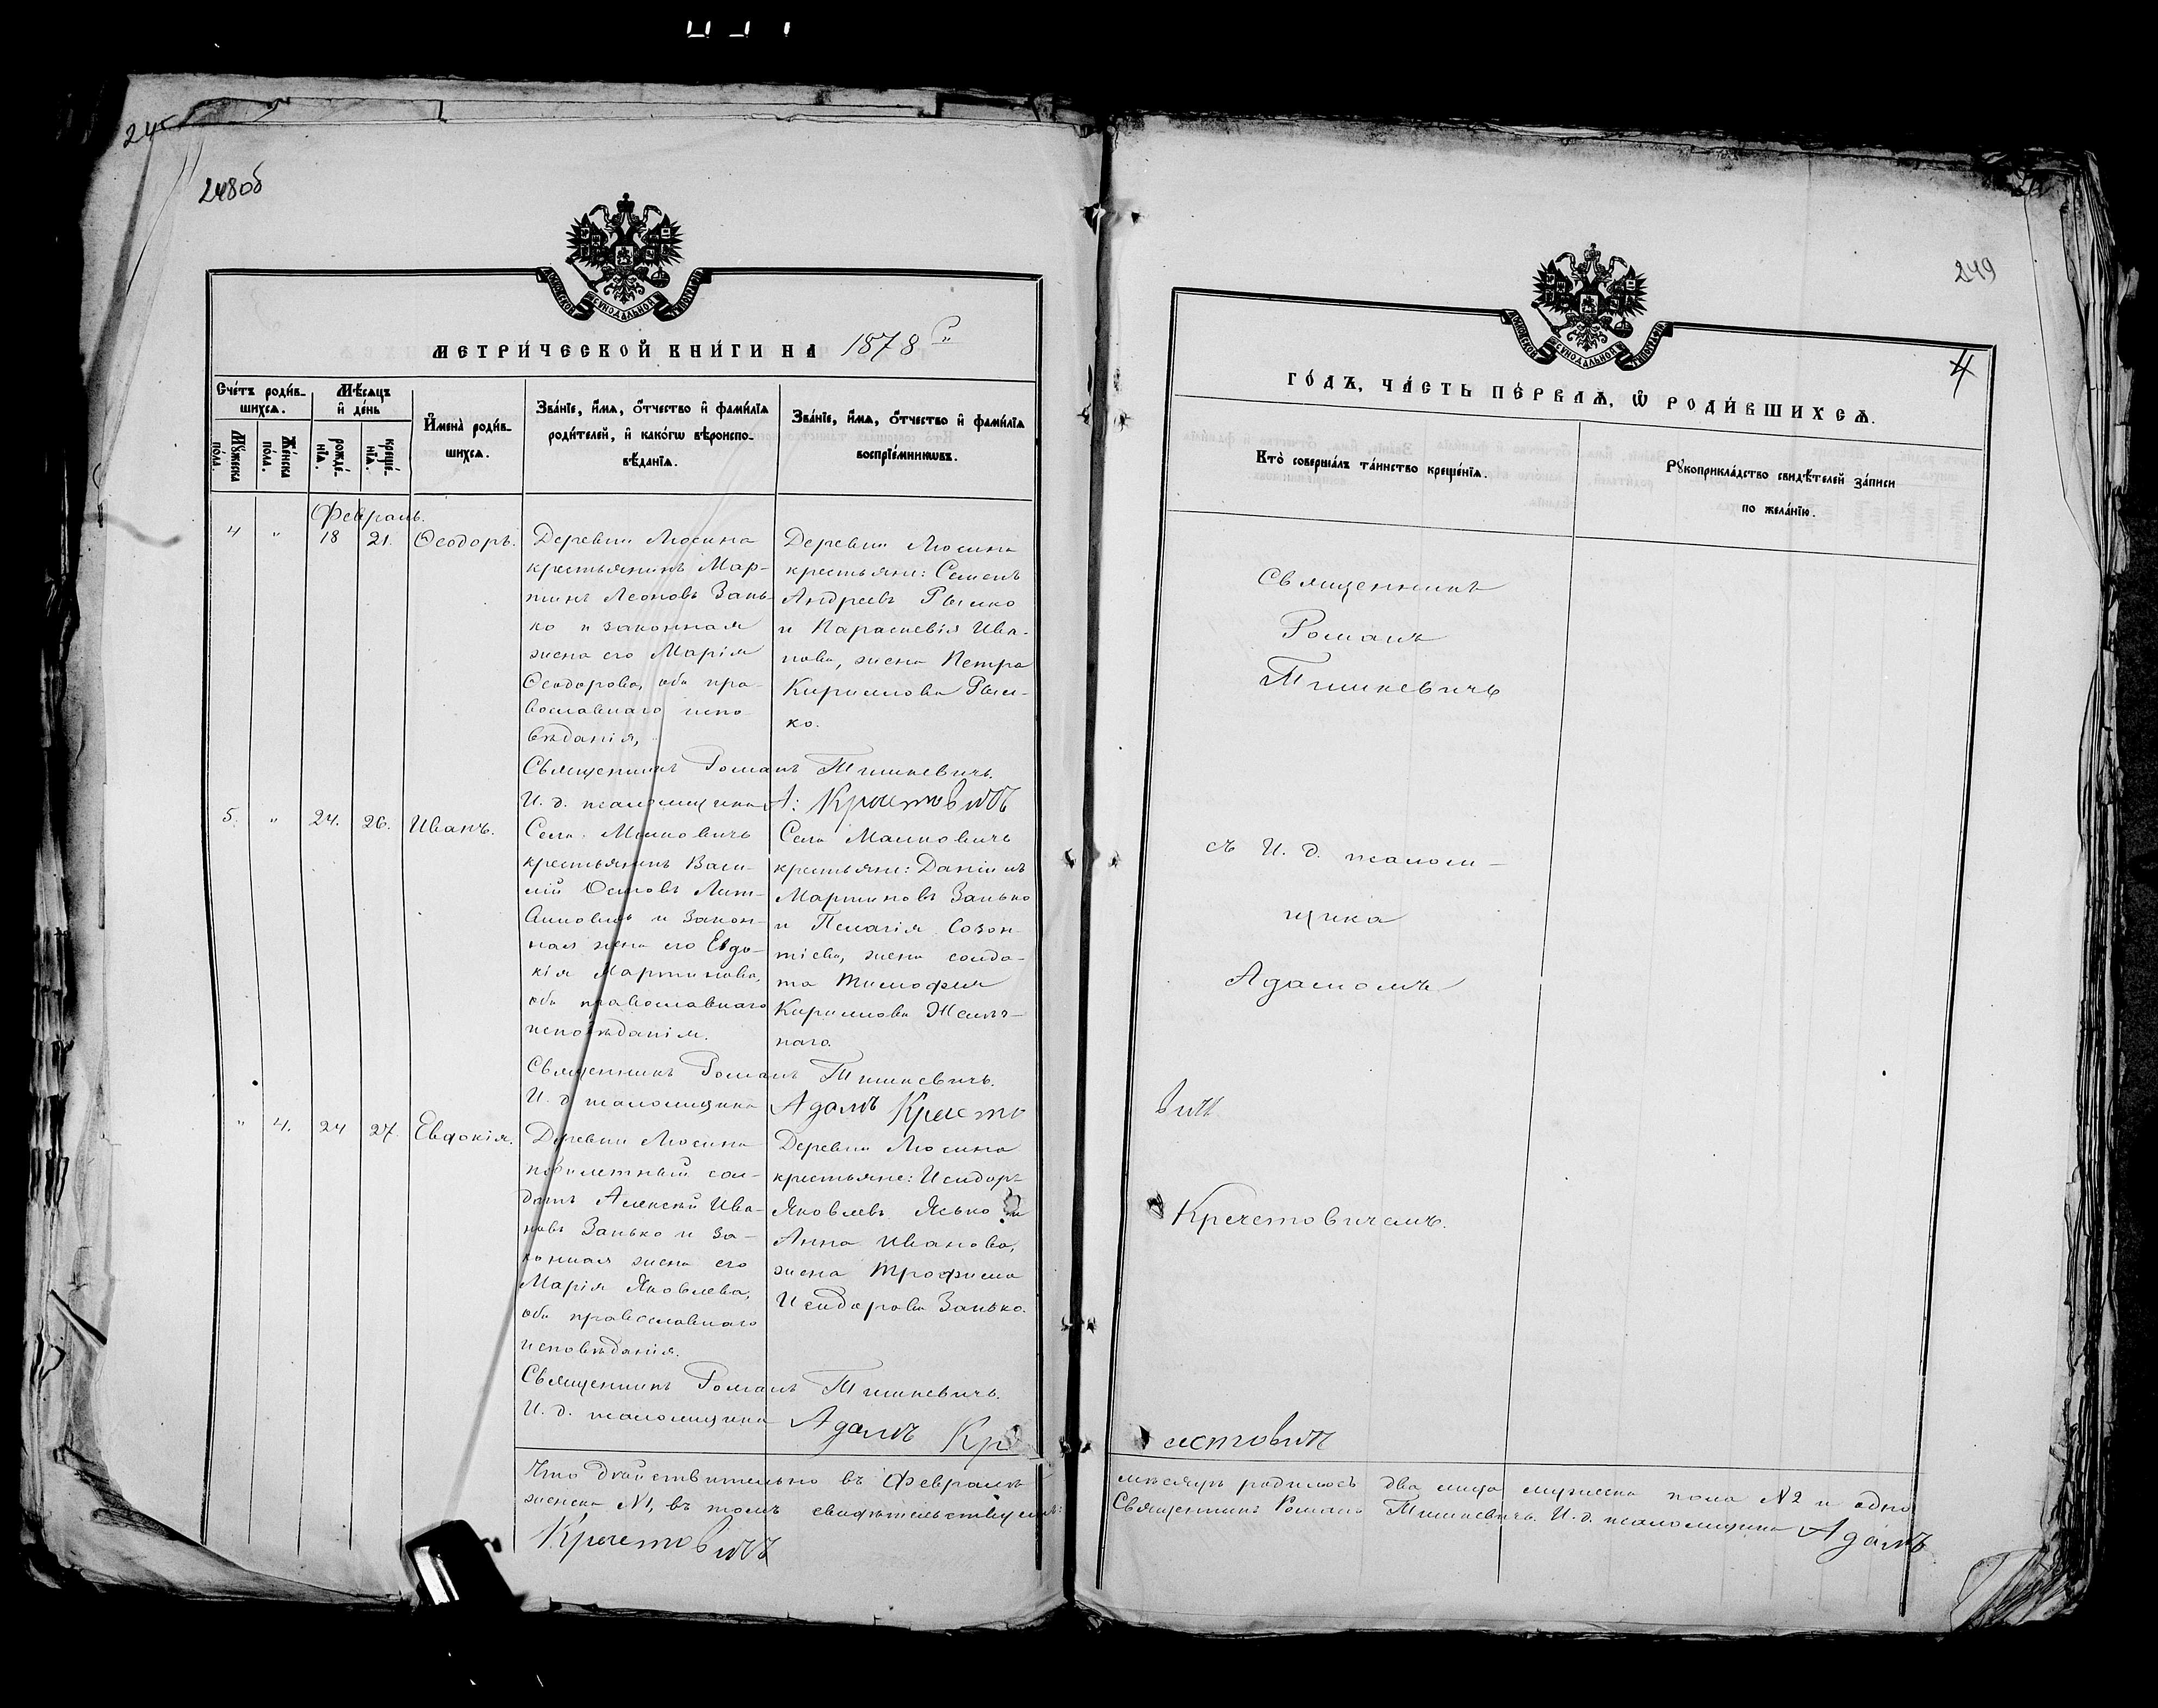 248об
МЕТРИ́ЧЕСКОЙ КНИ́ГИ НА 1878 г.
Сче́тъ роди́в-
шихся.
Мѣ́сяцъ
и҆ де́нь
И҆мена̀ роди́в-
шихся.
Зва́нїе, и҆́мя, ѻ҆́тчество и҆ фами́лїя
роди́телей, и҆ како́гѡ вѣроиспо-
вѣ́данїя.
Зва́нїе, и҆́мя, ѻ҆́тчество и҆ фами́лїя
воспрїе́мникѡвъ.
Мꙋ́жеска
по́ла.
Же́нска
по́ла.
рожде́-
нїя.
креще́-
нїя.
Февраль.
4 " 18 21. Ѳеодоръ.
Деревни Люсина
крестьянинъ Мар-
тинъ Леоновъ Зань-
ко и законная
жена его Марія
Ѳеодорова, оба пра-
вославнаго испо-
вѣданія,
Деревни Люсина
крестьяне: Семенъ
Андреевъ Рымко
и Параскевія Ива-
нова, жена Петра
Кириллова Рым-
ко.
Священникъ Романъ Тишкевичъ.
И. д. псаломщика А: Крыстовичъ
5. " 24. 26. Иванъ.
Села
крестьянинъ Васи-
лій Осиповъ
и закон-
ная жена его Евдо-
кія Мартинова,
оба православнаго
исповѣданія.
Села Малковичъ
крестьяне: Даніилъ
Мартиновъ Занько
и Пелагія Созон-
тіева, жена солда-
та Тимофея
Кириллова
наго.
Священникъ Романъ Тишкевичъ.
И. д. псаломщика Адамъ Крысто
" 4. 24 27. Евдокія.
Деревни Люсина
побилетный сол-
датъ Алексѣй Ива-
новъ Занько и за-
конная жена его
Марія Яковлева,
оба православнаго
исповѣданія.
Деревни Люсина
крестьяне: Исидоръ
Яковлевъ Ясько и
Анна Иванова,
жена Трофима
Исидорова Занько.
Священникъ Романъ Тишкевичъ.
И. д. псаломщика Адамъ Кр
Что дѣйствительно въ Февралѣ
женска №1, въ томъ свидѣтельствуемъ:
Крыстовичъ
249
4
ГО́ДЪ, ЧА́СТЬ ПЕ́РВАЯ, Ѡ҆ РОДИ́ВШИХСЯ.
Кто̀ соверша́лъ та́инство креще́нїя.
Рꙋкоприкла́дство свидѣ́телей за́писи
по жела́нїю.
Священникъ
Романъ
Тишкевичъ
съ И. д. псалом-
щика
Адамомъ
вичъ
Крыстовичемъ.
ыстовичъ
мѣсяцѣ родилось два лица мужеска пола №2 и одно
Священникъ Романъ Тишкевичъ. И. д. псаломщика Адамъ